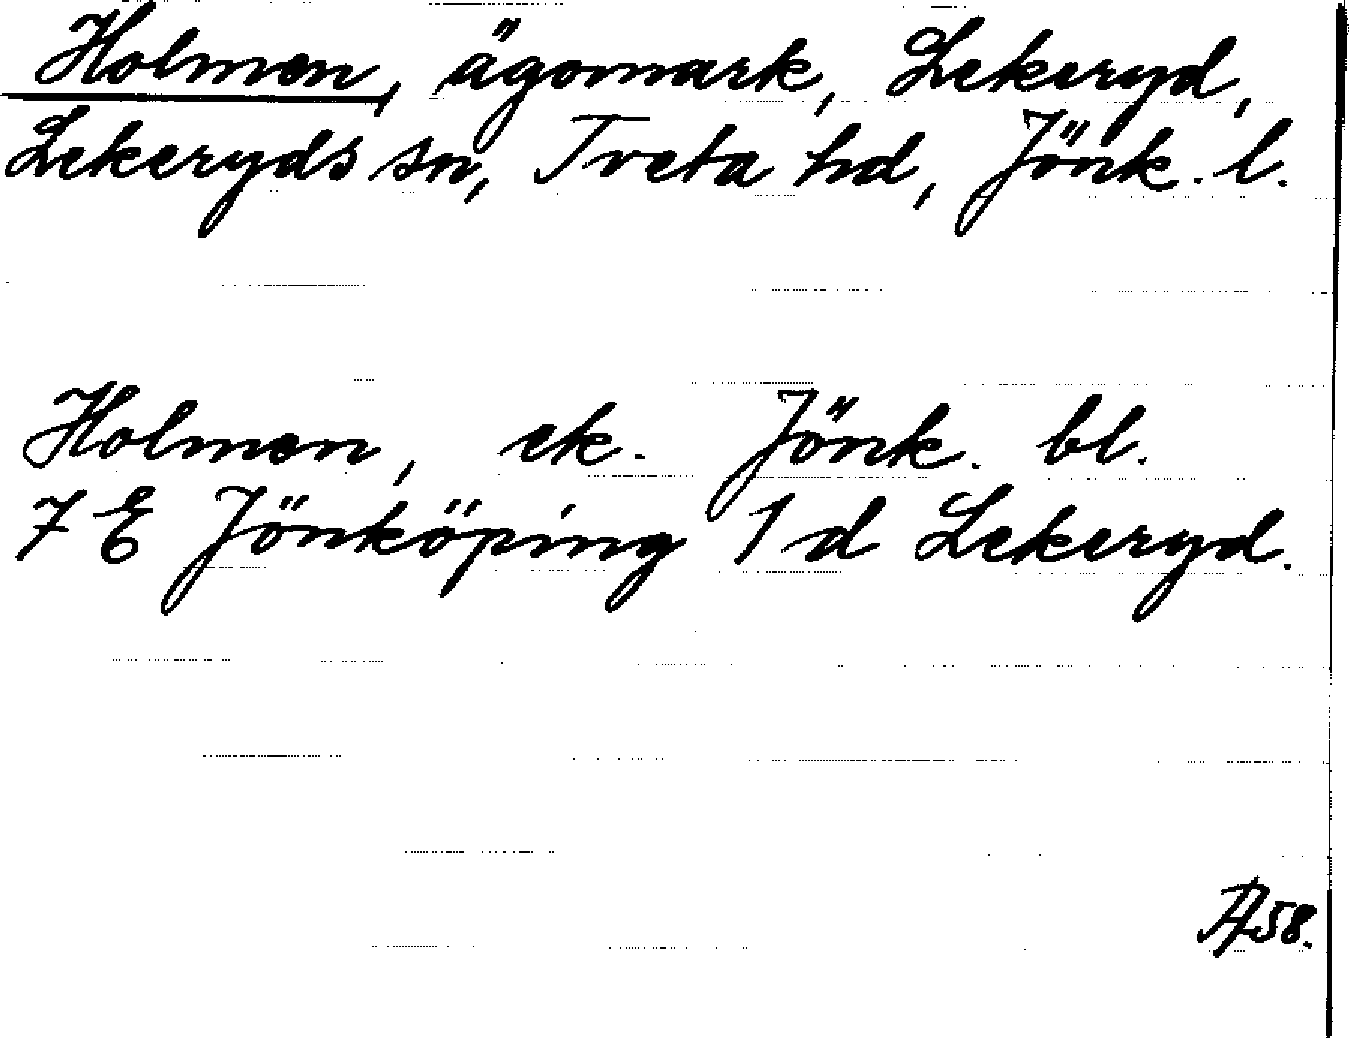 Holmen, ägomark, Lekeryd,
Lekeryds sn, Tveta hd, Jönk. l.
Holmen, ek. Jönk. bl.
7 E Jönköping 1 d Lekeryd.
58.